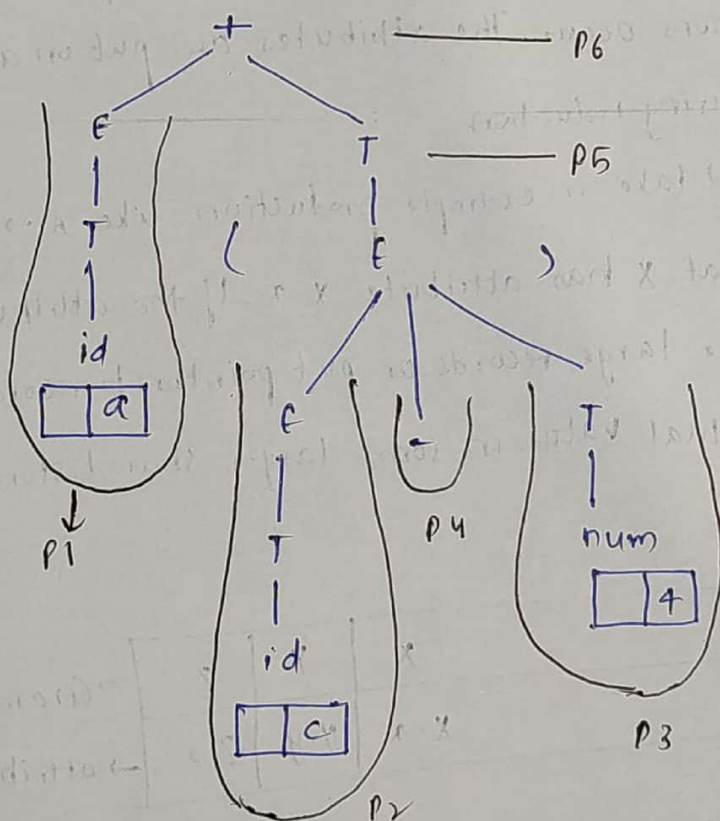 + P6
E T P5
T ( E )
id
a E - T
P1 T P4 num
4
id
c P3
P2